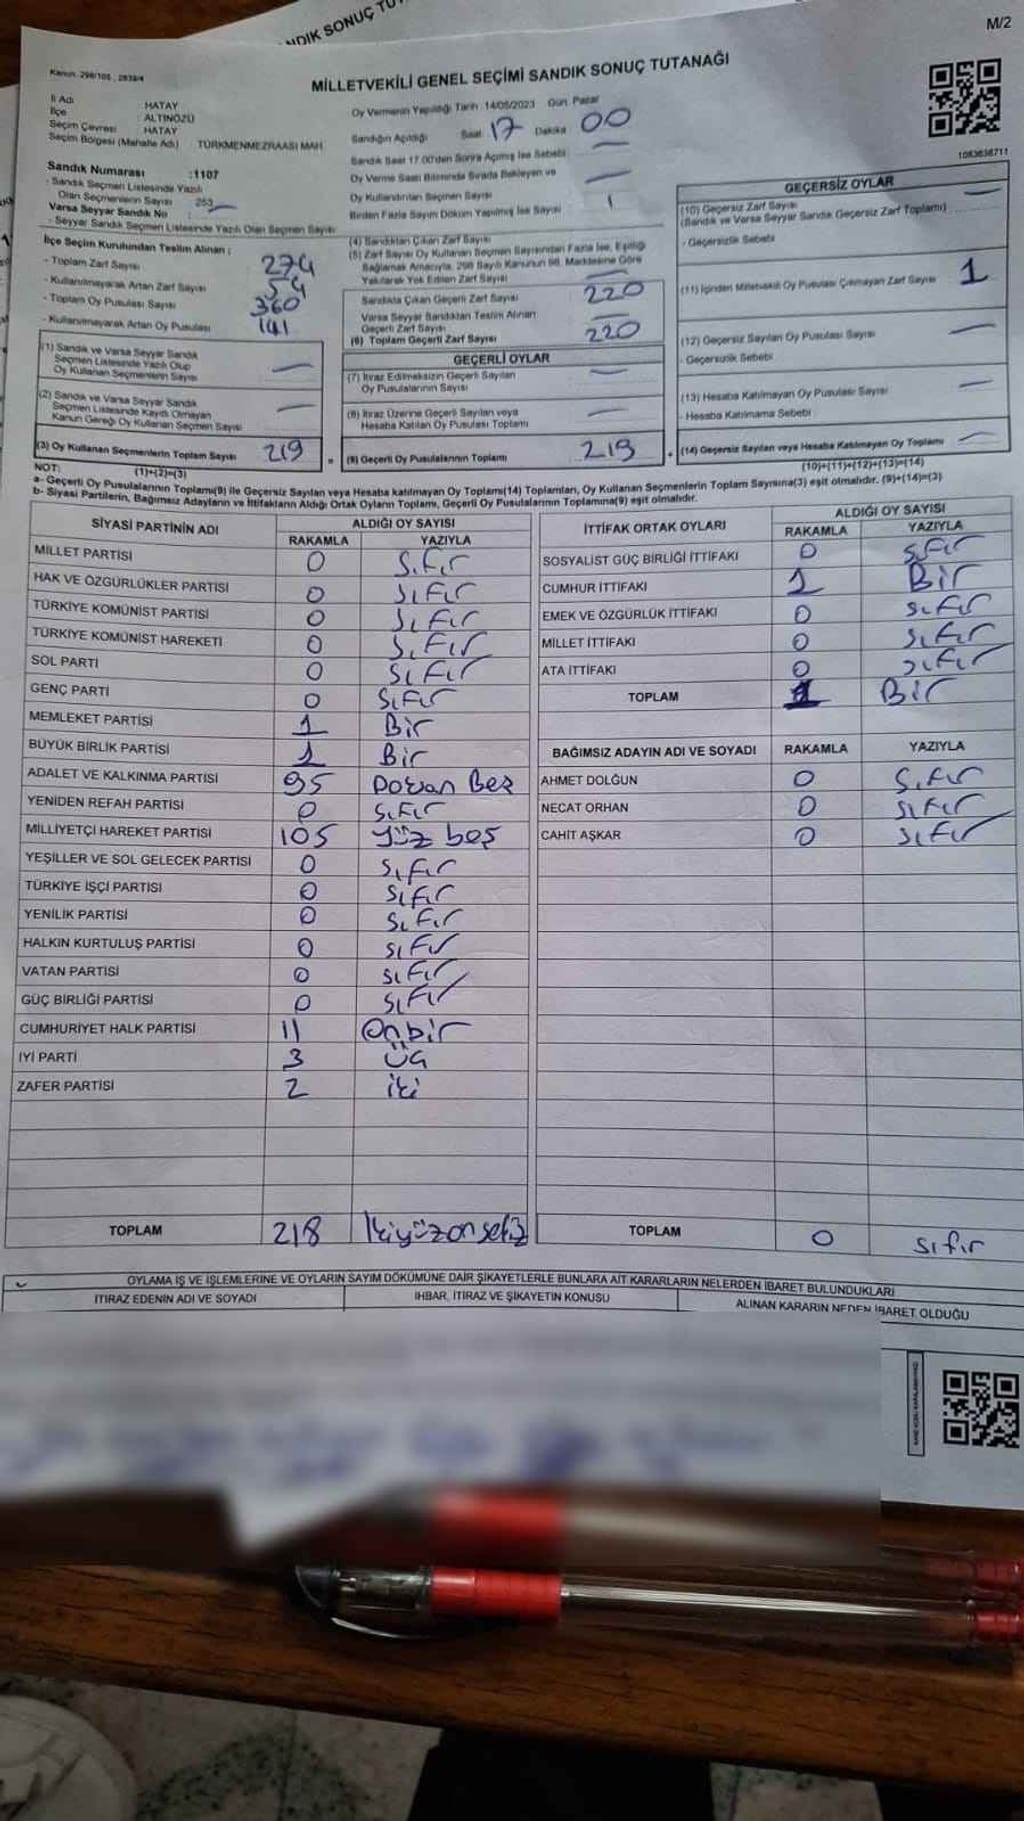 NDIK SONUÇ TU
M/2
Kanun: 298/105 , 2839/4
MİLLETVEKİLİ GENEL SEÇİMİ SANDIK SONUÇ TUTANAĞI
İl Adı : HATAY
İlçe : ALTINÖZÜ
Seçim Çevresi : HATAY
Seçim Bölgesi (Mahalle Adı) TÜRKMENMEZRAASI MAH.
Oy Vermenin Yapıldığı Tarih :14/05/2023 Gün: Pazar
Sandığın Açıldığı Saat 17 Dakika 00
Sandık Saat 17.00'den Sonra Açılmış İse Sebebi —
Oy Verme Saati Bitiminde Sırada Bekleyen ve
Oy Kullandırılan Seçmen Sayısı —
Birden Fazla Sayım Döküm Yapılmış İse Sayısı 1
1083638711
Sandık Numarası :1107
- Sandık Seçmen Listesinde Yazılı
Olan Seçmenlerin Sayısı 253
Varsa Seyyar Sandık No : —
- Seyyar Sandık Seçmen Listesinde Yazılı Olan Seçmen Sayısı
İlçe Seçim Kurulundan Teslim Alınan :
- Toplam Zarf Sayısı 274
- Kullanılmayarak Artan Zarf Sayısı 54
- Toplam Oy Pusulası Sayısı 360
- Kullanılmayarak Artan Oy Pusulası 141
(1) Sandık ve Varsa Seyyar Sandık
Seçmen Listesinde Yazılı Olup
Oy Kullanan Seçmenlerin Sayısı —
(2) Sandık ve Varsa Seyyar Sandık
Seçmen Listesinde Kayıtlı Olmayan
Kanun Gereği Oy Kullanan Seçmen Sayısı —
(3) Oy Kullanan Seçmenlerin Toplam Sayısı 219
(1)+(2)=(3)
(4) Sandıktan Çıkan Zarf Sayısı
(5) Zarf Sayısı Oy Kullanan Seçmen Sayısından Fazla İse, Eşitliği
Sağlamak Amacıyla, 298 Sayılı Kanunun 98. Maddesine Göre
Yakılarak Yok Edilen Zarf Sayısı —
Sandıkta Çıkan Geçerli Zarf Sayısı 220
Varsa Seyyar Sandıktan Teslim Alınan
Geçerli Zarf Sayısı —
(6) Toplam Geçerli Zarf Sayısı 220
GEÇERLİ OYLAR
(7) İtiraz Edilmeksizin Geçerli Sayılan
Oy Pusulalarının Sayısı —
(8) İtiraz Üzerine Geçerli Sayılan veya
Hesaba Katılan Oy Pusulası Toplamı —
(9) Geçerli Oy Pusulalarının Toplamı 219
GEÇERSİZ OYLAR
(10) Geçersiz Zarf Sayısı —
(Sandık ve Varsa Seyyar Sandık Geçersiz Zarf Toplamı)
- Geçersizlik Sebebi
(11) İçinden Milletvekili Oy Pusulası Çıkmayan Zarf Sayısı 1
(12) Geçersiz Sayılan Oy Pusulası Sayısı —
- Geçersizlik Sebebi
(13) Hesaba Katılmayan Oy Pusulası Sayısı —
- Hesaba Katılmama Sebebi
(14) Geçersiz Sayılan veya Hesaba Katılmayan Oy Toplamı —
(10)+(11)+(12)+(13)=(14)
NOT:
a- Geçerli Oy Pusulalarının Toplamı(9) ile Geçersiz Sayılan veya Hesaba katılmayan Oy Toplamı(14) Toplamları, Oy Kullanan Seçmenlerin Toplam Sayısına(3) eşit olmalıdır. (9)+(14)=(3)
b- Siyasi Partilerin, Bağımsız Adayların ve İttifakların Aldığı Ortak Oyların Toplamı, Geçerli Oy Pusulalarının Toplamına(9) eşit olmalıdır.
SİYASİ PARTİNİN ADI ALDIĞI OY SAYISI
RAKAMLA YAZIYLA
MİLLET PARTİSİ 0 Sıfır
HAK VE ÖZGÜRLÜKLER PARTİSİ 0 Sıfır
TÜRKİYE KOMÜNİST PARTİSİ 0 Sıfır
TÜRKİYE KOMÜNİST HAREKETİ 0 Sıfır
SOL PARTİ 0 Sıfır
GENÇ PARTİ 0 Sıfır
MEMLEKET PARTİSİ 1 Bir
BÜYÜK BİRLİK PARTİSİ 1 Bir
ADALET VE KALKINMA PARTİSİ 95 Doksan Beş
YENİDEN REFAH PARTİSİ 0 Sıfır
MİLLİYETÇİ HAREKET PARTİSİ 105 Yüz beş
YEŞİLLER VE SOL GELECEK PARTİSİ 0 Sıfır
TÜRKİYE İŞÇİ PARTİSİ 0 Sıfır
YENİLİK PARTİSİ 0 Sıfır
HALKIN KURTULUŞ PARTİSİ 0 Sıfır
VATAN PARTİSİ 0 Sıfır
GÜÇ BİRLİĞİ PARTİSİ 0 Sıfır
CUMHURİYET HALK PARTİSİ 11 Onbir
İYİ PARTİ 3 Üç
ZAFER PARTİSİ 2 iki
TOPLAM 218 İkiyüzonsekiz
İTTİFAK ORTAK OYLARI ALDIĞI OY SAYISI
RAKAMLA YAZIYLA
SOSYALİST GÜÇ BİRLİĞİ İTTİFAKI 0 Sıfır
CUMHUR İTTİFAKI 1 Bir
EMEK VE ÖZGÜRLÜK İTTİFAKI 0 Sıfır
MİLLET İTTİFAKI 0 Sıfır
ATA İTTİFAKI 0 Sıfır
TOPLAM 1 Bir
BAĞIMSIZ ADAYIN ADI VE SOYADI RAKAMLA YAZIYLA
AHMET DOLĞUN 0 Sıfır
NECAT ORHAN 0 Sıfır
CAHİT AŞKAR 0 Sıfır
TOPLAM 0 Sıfır
OYLAMA İŞ VE İŞLEMLERİNE VE OYLARIN SAYIM DÖKÜMÜNE DAİR ŞİKAYETLERLE BUNLARA AİT KARARLARIN NELERDEN İBARET BULUNDUKLARI
İTİRAZ EDENİN ADI VE SOYADI İHBAR, İTİRAZ VE ŞİKAYETİN KONUSU ALINAN KARARIN NEDEN İBARET OLDUĞU